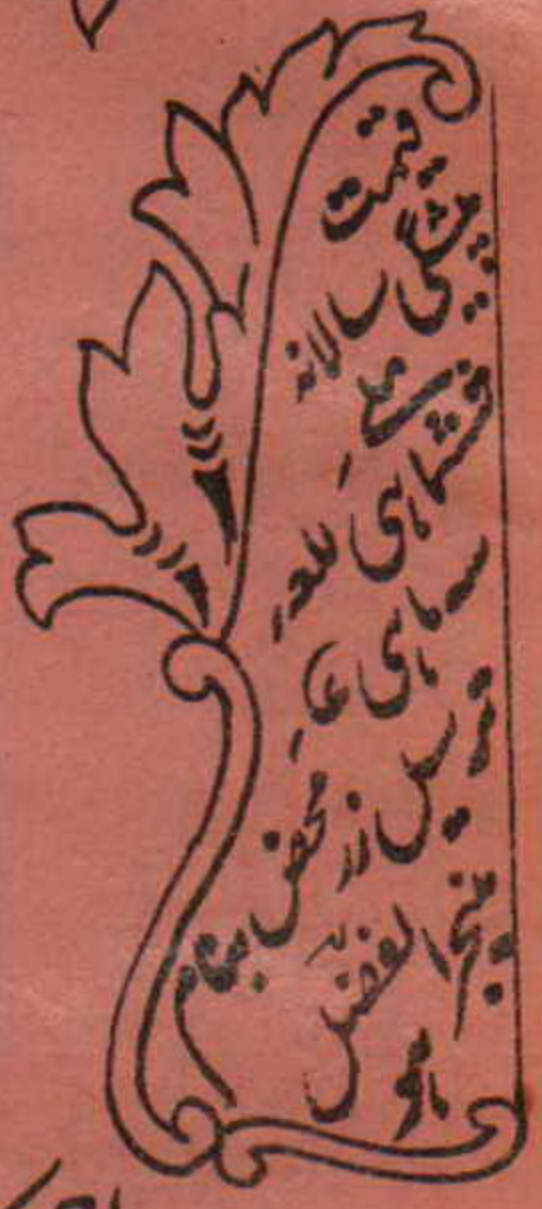 قیمت
پیشگی سالانہ
ششماہی للعہ
سہ ماہی
ترسیل زر محض بنام
منیجر الفضل
ہو